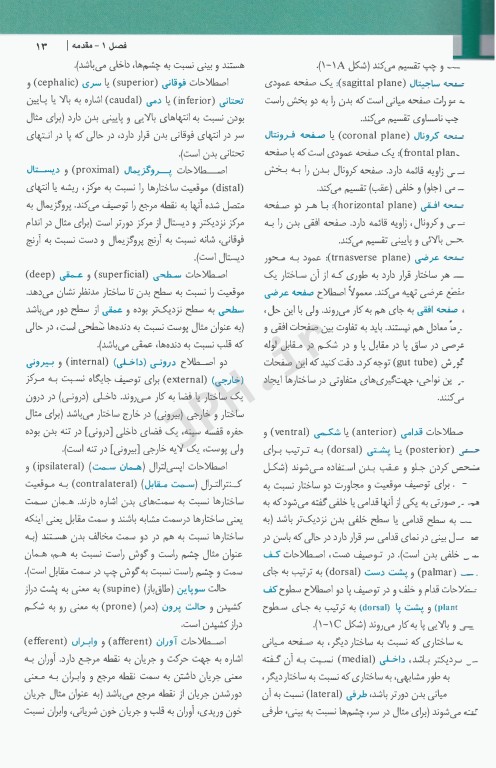 فصل ۱ - مقدمه | ۱۳
و چپ تقسیم می‌کند (شکل ۱A-۱).
صفحه ساجیتال (sagittal plane): یک صفحه عمودی
صفحه میانی است که بدن را به دو بخش راست
چپ نامساوی تقسیم می‌کند.
صفحه کرونال (coronal plane) یا صفحه فرونتال
frontal plan): یک صفحه عمودی است که با صفحه
زاویه قائمه دارد. صفحه کرونال بدن را به بخش
(جلو) و خلفی (عقب) تقسیم می‌کند.
صفحه افقی (horizontal plane): با هر دو صفحه
و کرونال، زاویه قائمه دارد. صفحه افقی بدن را به
بالائی و پایینی تقسیم می‌کند.
صفحه عرضی (trnasverse plane): عمود به محور
هر ساختار قرار دارد به طوری که از آن ساختار یک
مقطع عرضی تهیه می‌کند. معمولاً اصطلاح صفحه عرضی
صفحه افقی به جای هم به کار می‌روند. ولی با این حل،
معادل هم نیستند. باید به تفاوت بین صفحات افقی و
عرضی در ساق پا در مقابل پا و در شکم در مقابل لوله
(gut tube) توجه کرد. دقت کنید که این صفحات
این نواحی، جهت‌گیری‌های متفاوتی در ساختارها ایجاد
می‌کنند.
اصطلاحات قدامی (anterior) یا شکمی (ventral) و
خلفی (posterior) یا پشتی (dorsal) به ترتیب برای
مشخص کردن جلو و عقب بدن استفاده می‌شوند (شکل
برای توصیف موقعیت و مجاورت دو ساختار نسبت به
صورتی به یکی از آنها قدامی یا خلفی گفته می‌شود که به
به سطح قدامی یا سطح خلفی بدن نزدیک‌تر باشد (به
بینی در نمای قدامی سر قرار دارد در حالی که باسن در
خلفی بدن است). در توصیف دست، اصطلاحات کف
(palmar) و پشت دست (dorsal) به ترتیب به جای
اصطلاحات قدام و خلف و در توصیف پا دو اصطلاح سطوح کف
(plant و پشت پا (dorsal) به ترتیب به جای سطوح
و بالایی پا به کار می‌روند (شکل ۱C-۱).
به ساختاری که نسبت به ساختار دیگر، به صفحه میانی
نزدیکتر باشد، داخلی (medial) نسبت به آن گفته
به طور مشابهی، به ساختاری که نسبت به ساختار دیگر،
میانی بدن دورتر باشد، طرفی (lateral) نسبت به آن
گفته می‌شوند (برای مثال در سر، چشم‌ها نسبت به بینی، طرفی
هستند و بینی نسبت به چشم‌ها، داخلی می‌باشد).
اصطلاحات فوقانی (superior) یا سری (cephalic) و
تحتانی (inferior) یا دمی (caudal) اشاره به بالا یا پایین
بودن نسبت به انتهاهای بالایی و پایینی بدن دارد (برای مثال
سر در انتهای فوقانی بدن قرار دارد، در حالی که پا در انتهای
تحتانی بدن است).
اصطلاحات پروگزیمال (proximal) و دیستال
(distal) موقعیت ساختارها را نسبت به مرکز، ریشه یا انتهای
متصل شده آنها به نقطه مرجع را توصیف می‌کند. پروگزیمال به
مرکز نزدیکتر و دیستال از مرکز دورتر است (برای مثال در اندام
فوقانی، شانه نسبت به آرنج پروگزیمال و دست نسبت به آرنج
دیستال است).
اصطلاحات سطحی (superficial) و عمقی (deep)
موقعیت را نسبت به سطح بدن تا ساختار مدنظر نشان می‌دهد.
سطحی به سطح نزدیک‌تر بوده و عمقی از سطح دور می‌باشد
(به عنوان مثال پوست نسبت به دنده‌ها سطحی است، در حالی
که قلب نسبت به دنده‌ها، عمقی می‌باشد).
دو اصطلاح درونی (داخلی) (internal) و بیرونی
(خارجی) (external) برای توصیف جایگاه نسبت به مرکز
یک ساختار یا فضا به کار می‌روند. داخلی (درونی) در درون
ساختار و خارجی (بیرونی) در خارج ساختار می‌باشد (برای مثال
حفره قفسه سینه، یک فضای داخلی [درونی] در تنه بدن بوده
ولی پوست، یک لایه خارجی [بیرونی] در تنه است).
اصطلاحات ایسی‌لترال (همان سمت) (ipsilateral) و
کنترالترال (سمت مقابل) (contralateral) به موقعیت
ساختارها نسبت به سمت‌های بدن اشاره دارند. همان سمت
یعنی ساختارها درسمت مشابه باشند و سمت مقابل یعنی اینکه
ساختارها نسبت به هم در دو سمت مخالف بدن هستند (به
عنوان مثال چشم راست و گوش راست نسبت به هم، همان
سمت و چشم راست نسبت به گوش چپ در سمت مقابل است).
حالت سوپاین (طاق‌باز) (supine) به معنی به پشت دراز
کشیدن و حالت پرون (دمر) (prone) به معنی رو به شکم
دراز کشیدن است.
اصطلاحات آوران (afferent) و وابران (efferent)
اشاره به جهت حرکت و جریان به نقطه مرجع دارد. آوران به
معنی جریان داشتن به سمت نقطه مرجع و وابران به معنی
دورشدن جریان از نقطه مرجع می‌باشد (به عنوان مثال جریان
خون وریدی، آوران به قلب و جریان خون شریانی، وابران نسبت